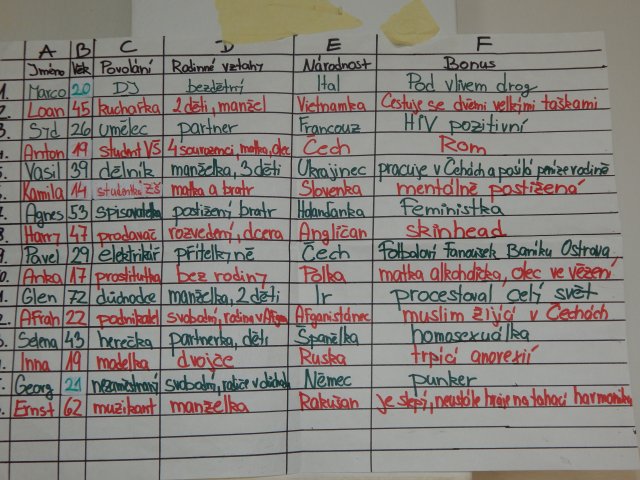 A B C D E F
Jméno Věk Povolání Rodinné vztahy Národnost Bonus
1. Marco 20 DJ bezdětný Ital Pod vlivem drog
2. Loan 45 kuchařka 2 děti, manžel Vietnamka Cestuje se dvěmi velkými taškami
3. Syd 26 umělec partner Francouz HIV pozitivní
4. Anton 19 student VŠ 4 sourozenci, matka, otec Čech Rom
5. Vasil 39 dělník manželka, 3 děti Ukrajinec pracuje v Čechách a posílá peníze rodině
6. Kamila 14 studentka ZŠ matka a bratr Slovenka mentálně postižená
7. Agnes 53 spisovatelka postižený bratr Holanďanka feministka
8. Harry 47 prodavač rozvedený, dcera Angličan skinhead
9. Pavel 29 elektrikář přítelkyně Čech Fotbalový fanoušek Baníku Ostrava
0. Anka 17 prostitutka bez rodiny Polka matka alkoholička, otec ve vězení
1. Glen 72 důchodce manželka, 2 děti Ir procestoval celý svět
2. Afrah 22 podnikatel svobodný, rodina v Afgan Afganistánec muslim žijící v Čechách
3. Selena 43 herečka partnerka, děti Španělka homosexuálka
. Inna 19 modelka dvojče Ruska trpící anorexií
. Georg 21 nezaměstnaný svobodný, rodiče v důchodu Němec punker
. Ernst 62 muzikant manželka Rakušan je slepý, neustále hraje na tahací harmoniku